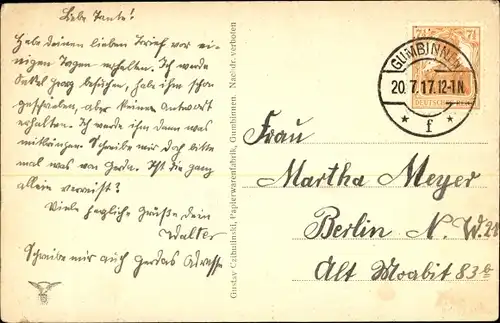 Liebe Tante!
Habe deinen lieben Brief vor ei-
nigen Tagen erhalten. Ich werde
Onkel Georg besuchen, habe ihm schon
geschrieben, aber keine Antwort
erhalten. Ich werde ihm dann was
mitbringen. Schreibe mir doch bitte
mal was von Gerda. Ist die ganz
allein verreist?
Viele herzliche Grüße dein
Walter
Schreibe mir auch Gerdas Adresse
Gustav Czibulinski, Papierwarenfabrik, Gumbinnen. Nachdr. verboten
7½ 7½
DEUTSCHES REICH
GUMBINNEN
20.7.17.12-1N.
* f *
Frau
Martha Meyer
Berlin N.W. 21
Alt Moabit 83b